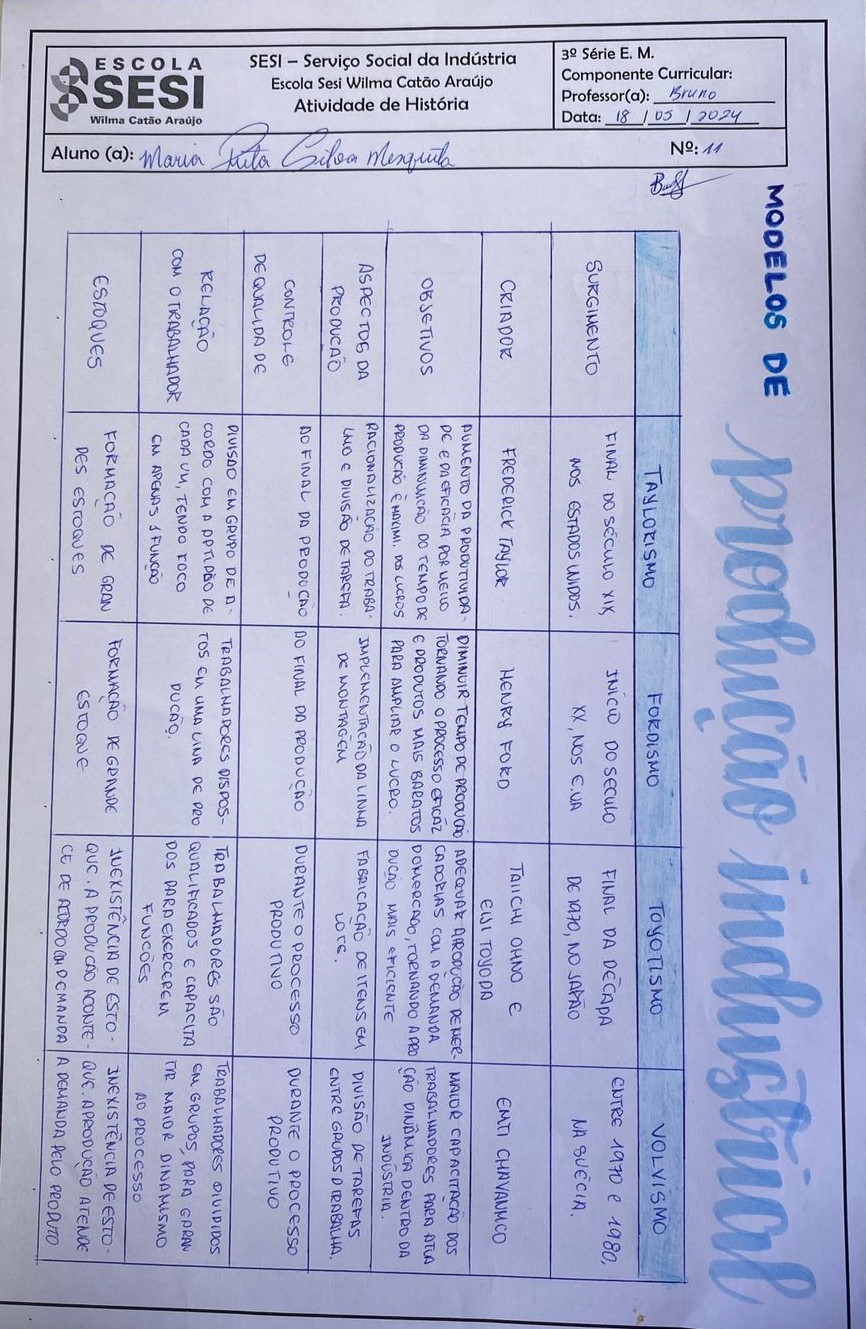 ESCOLA
SESI
Wilma Catão Araújo
SESI – Serviço Social da Indústria
Escola Sesi Wilma Catão Araújo
Atividade de História
3º Série E. M.
Componente Curricular:
Professor(a): Bruno
Data: 18 / 05 / 2024
Aluno (a): Maria Rita Silva Mesquita
Nº: 11
MODELOS DE
produção industrial
TAYLORISMO
FORDISMO
TOYOTISMO
VOLVISMO
SURGIMENTO
FINAL DO SÉCULO XIX,
NOS ESTADOS UNIDOS.
INÍCIO DO SÉCULO
XX, NOS E.UA
FINAL DA DÉCADA
DE 1970, NO JAPÃO
ENTRE 1970 e 1980,
NA SUÉCIA.
CRIADOR
FREDERICK TAYLOR
HENRY FORD
TAIICHI OHNO E
EIJI TOYODA
EMTI CHAVANMCO
OBJETIVOS
AUMENTO DA PRODUTIVIDA-
DE E DA EFICÁCIA POR MEIO
DA DIMINUIÇÃO DO TEMPO DE
PRODUÇÃO E MAXIMI. DOS LUCROS
DIMINUIR TEMPO DE PRODUÇÃO
TORNANDO O PROCESSO EFICAZ
E PRODUTOS MAIS BARATOS
PARA AMPLIAR O LUCRO.
ADEQUAR A PRODUÇÃO DE MER-
CADORIAS COM A DEMANDA
DO MERCADO, TORNANDO A PRO
DUÇÃO MAIS EFICIENTE
MAIOR CAPACITAÇÃO DOS
TRABALHADORES PARA ATUA
ÇÃO DINÂMICA DENTRO DA
INDÚSTRIA.
ASPECTOS DA
PRODUÇÃO
RACIONALIZAÇÃO DO TRABA-
LHO E DIVISÃO DE TAREFA.
IMPLEMENTAÇÃO DA LINHA
DE MONTAGEM
FABRICAÇÃO DE ITENS EM
LOTE.
DIVISÃO DE TAREFAS
ENTRE GRUPOS D TRABALHA.
CONTROLE
DE QUALIDA DE
AO FINAL DA PRODUÇÃO
AO FINAL DA PRODUÇÃO
DURANTE O PROCESSO
PRODUTIVO
DURANTE O PROCESSO
PRODUTIVO
RELAÇÃO
COM O TRABALHADOR
DIVISÃO EM GRUPO DE A-
CORDO COM A APTIDÃO DE
CADA UM, TENDO FOCO
EM APENAS 1 FUNÇÃO
TRABALHADORES DISPOS-
TOS EM UMA LINA DE PRO
DUÇÃO.
TRABALHADORES SÃO
QUALIFICADOS E CAPACITA
DOS PARA EXERCEREM
FUNCÕES
TRABALHADORES DIVIDIDOS
EM GRUPOS, PARA GARAN
TIR MAIOR DINAMISMO
AO PROCESSO
ESTOQUES
FORMAÇÃO DE GRAN
DES ESTOQUES
FORMAÇÃO DE GRANDE
ESTOQUE
INEXISTÊNCIA DE ESTO-
QUE. A PRODUÇÃO ACONTE-
CE DE ACORDO COM DEMANDA
INEXISTÊNCIA DE ESTO-
QUE. A PRODUÇÃO ATENDE
A DEMANDA PELO PRODUTO